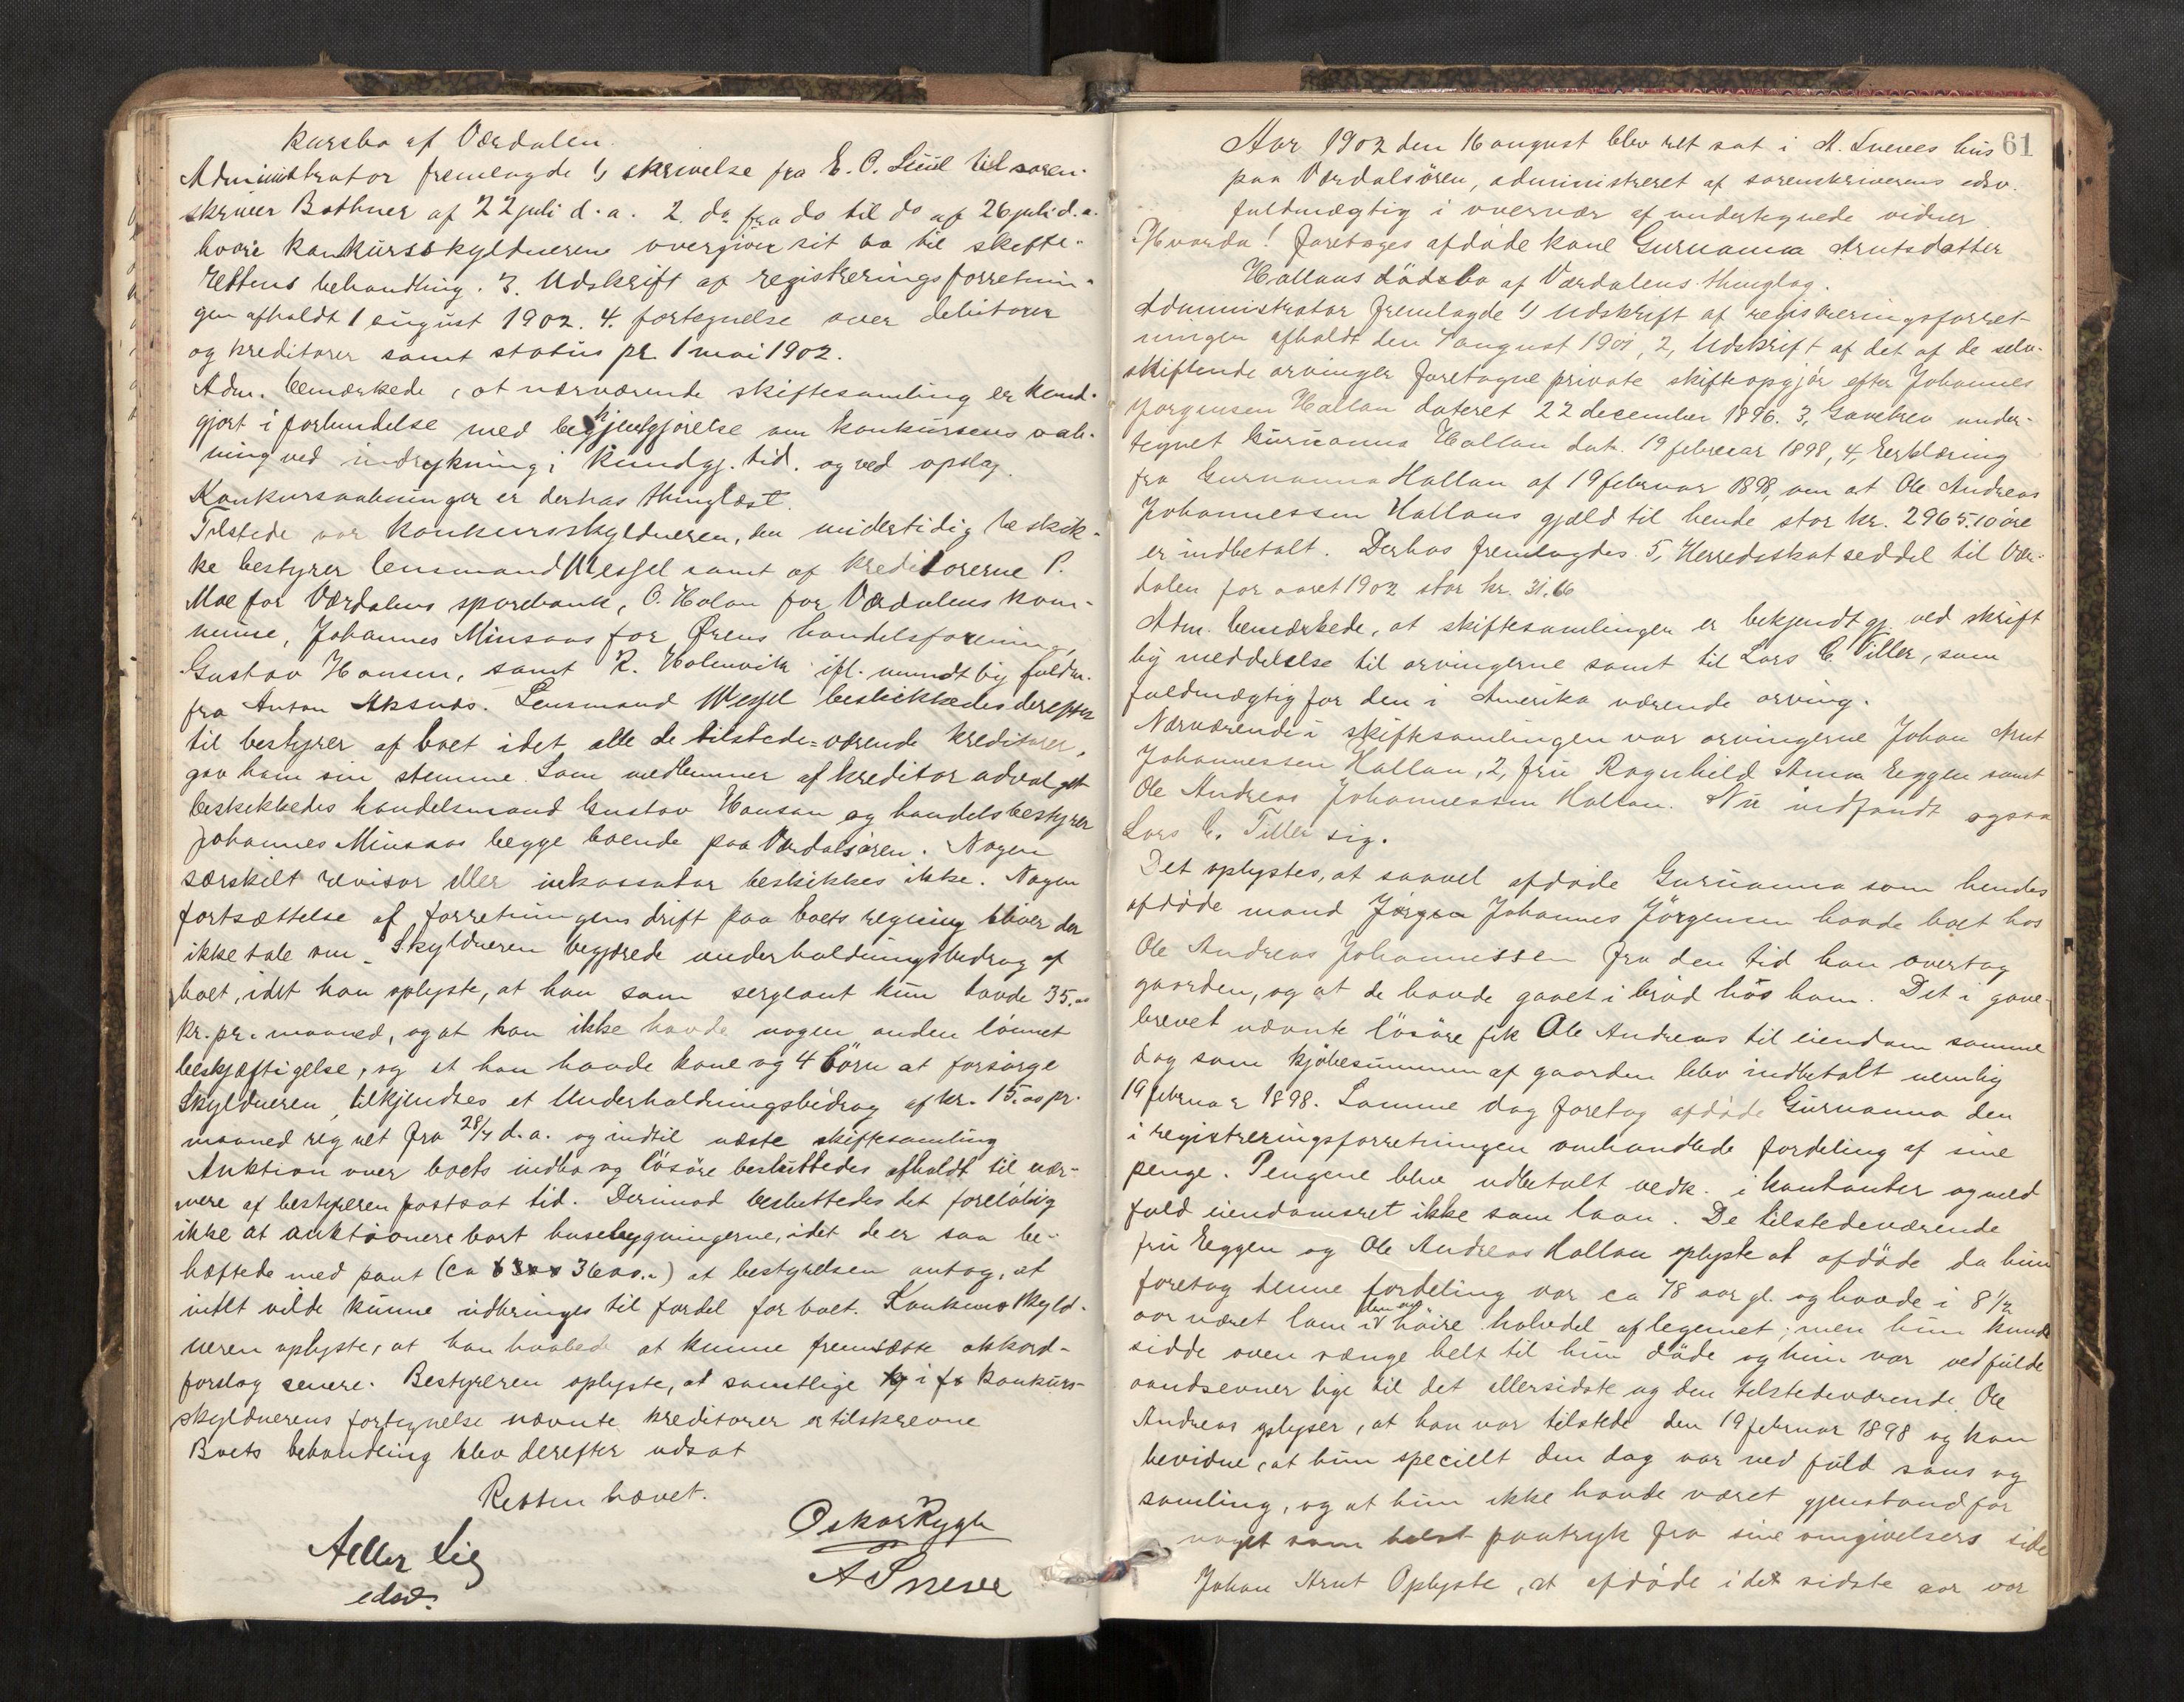 kursbo af Værdalen.
Administrator fremlagde 1) skrivelse fra E. O. til soren-
skriver Bothner af 22 juli d. a. 2. do fra do til do af 26 juli d. a.
hvori konkursskyldneren overgiver sit bo til skifte-
rettens behandling. 3. Udskrift af registreringsforretnin-
gen afholdt 1 august 1902. 4. fortegnelse over debitorer
og kreditorer samt status pr. 1 mai 1902.
Adm. bemærkede, at nærværende skiftesamling er kund-
gjort i forbindelse med bekjendtgjørelse om konkursens aab-
ning ved indrykning i kundgj. tid. og ved opslag.
Konkursaabningen er derhos thinglæst.
Tilstede var konkursskyldneren, den midertidig beskik-
ke bestyrer lensmand Wessel samt af kreditorerne P.
Moe for Værdalens sparebank, O. Holan for Værdalens kom-
mune, Johannes Minsaas for Ørens handelsforening,
Gustav Hansen, samt R. Holmvik ifl. mundtlig fuldm.
fra Anton Aksnes. Lensmand Wessel beskikkedes derefter
til bestyrer af boet idet alle de tilstede-værende kreditorer,
gav ham sin stemme. Som medlemmer af kreditorudvalget
beskikkedes handelsmand Gustav Hansen og handelsbestyrer
Johannes Minsaas begge boende paa Værdalsøren. Nogen
særskilt revisor eller inkassator beskikkes ikke. Nogen
fortsættelse af forretningens drift paa boets regning bliver der
ikke tale om. Skyldneren begjærede underholdningsbidrag af
boet, idet han oplyste, at han som sergeant kun havde 35.oo
kr. pr. maaned, og at han ikke havde nogen anden lønnet
beskjæftigelse, og at han havde kone og 4 børn at forsørge
Skyldneren tilkjendtes et Underholdningsbidrag af kr. 15.oo pr.
maaned regnet fra 28/7 d. a. og indtil næste skiftesamling
Auktion over boets indbo og løsøre besluttedes afholdt til nær-
mere af bestyreren fastsat tid. Derimod besluttedes det foreløbig
ikke at auktionere bort husebygningerne, idet de er saa be-
hæftede med pant (ca 3600.-) at bestyrelsen antog, at
intet vilde kunne udbringes til fordel for boet. Konkursskyld-
neren oplyste, at han haabede at kunne fremsætte akkord-
forslag senere. Bestyreren oplyste, at samtlige i konkurs-
skyldnerens fortegnelse nævnte kreditorer er tilskrevne
Boets behandling blev derefter udsat
Retten hævet.
Oskar Rygh
A Sneve
edsv.
61
Aar 1902 den 16 august blev ret sat i A. Sneves hus
paa Værdalsøren, administreret af sorenskriverens edsv.
fuldmægtig i overvær af undertegnede vidner
Hvorda! foretoges afdøde kone Guruanna Arntsdatter
Hallans dødsbo af Værdalens thinglag.
Administrator fremlagde 1) Udskrift af registreringsforret-
ningen afholdt den 7 august 1901, 2, Udskrift af det af de selv-
skiftende arvinger foretagne private skifteopgjør efter Johannes
Jørgensen Hallan dateret 22 december 1896. 3, Gavebrev under-
tegnet Guruanna Hallan dat. 19 februar 1898, 4, Erklæring
fra Guruanna Hallan af 19 februar 1898, om at Ole Andreas
Johannessen Hallans gjæld til hende stor kr. 2965.10 øre
er indbetalt. Derhos fremlagdes 5, Herredsskatseddel til Vær-
dalen for aaret 1902 stor kr. 31.66
Adm. bemærkede, at skiftesamlingen er bekjendtgj. ved skrift
lig meddelelse til arvingerne samt til Lars E. Tiller, som
fuldmægtig for den i Amerika værende arving.
Nærværende i skiftesamlingen var arvingerne Johan Arnt
Johannessen Hallan, 2, fru Ragnhild Anna Eggen samt
Ole Andreas Johannessen Hallan. Nu indfandt ogsaa
Lars E. Tiller sig.
Det oplystes, at saavel afdøde Guruanna som hendes
afdøde mand Jørgen Johannes Jørgensen havde boet hos
Ole Andreas Johannessen fra den tid han overtog
gaarden, og at de havde gaaet i brød hos ham. Det i gave-
brevet nævnte løsøre fik Ole Andreas til eiendom samme
dag som kjøbesummen af gaarden blev indbetalt nemlig
19 februar 1898. Samme dag foretog afdøde Guruanna den
i registreringsforretningen omhandlede fordeling af sine
penge. Pengene blev udbetalt vedk. i kontanter og med
fuld eiendomsret ikke som laan. De tilstedeværende
fru Eggen og Ole Andreas Hallan oplyste at afdøde da hun
foretog denne fordeling var ca 78 aar gl. og havde i 8 1/2
aar været lam i høire halvdel af legemet; men hun kunde
sidde oven sænge helt til hun døde og hun var ved fulde
aandsevner lige til det allersidste og den tilstedeværende Ole
Andreas oplyser, at han var tilstede den 19 februar 1898 og kan
bevidne, at hun specielt den dag var ved fuld sans og
samling, og at hun ikke havde været gjenstand for
noget som helst paatryk fra sine omgivelsers side
Johan Arnt Oplyste, at afdøde i det sidste aar var